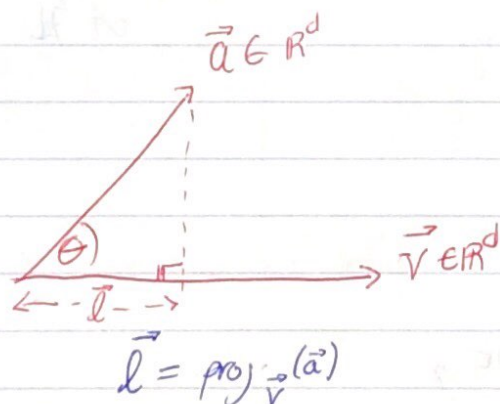 a⃗ ∈ ℝᵈ
θ
v⃗ ∈ ℝᵈ
l⃗
l⃗ = proj_v⃗ (a⃗)